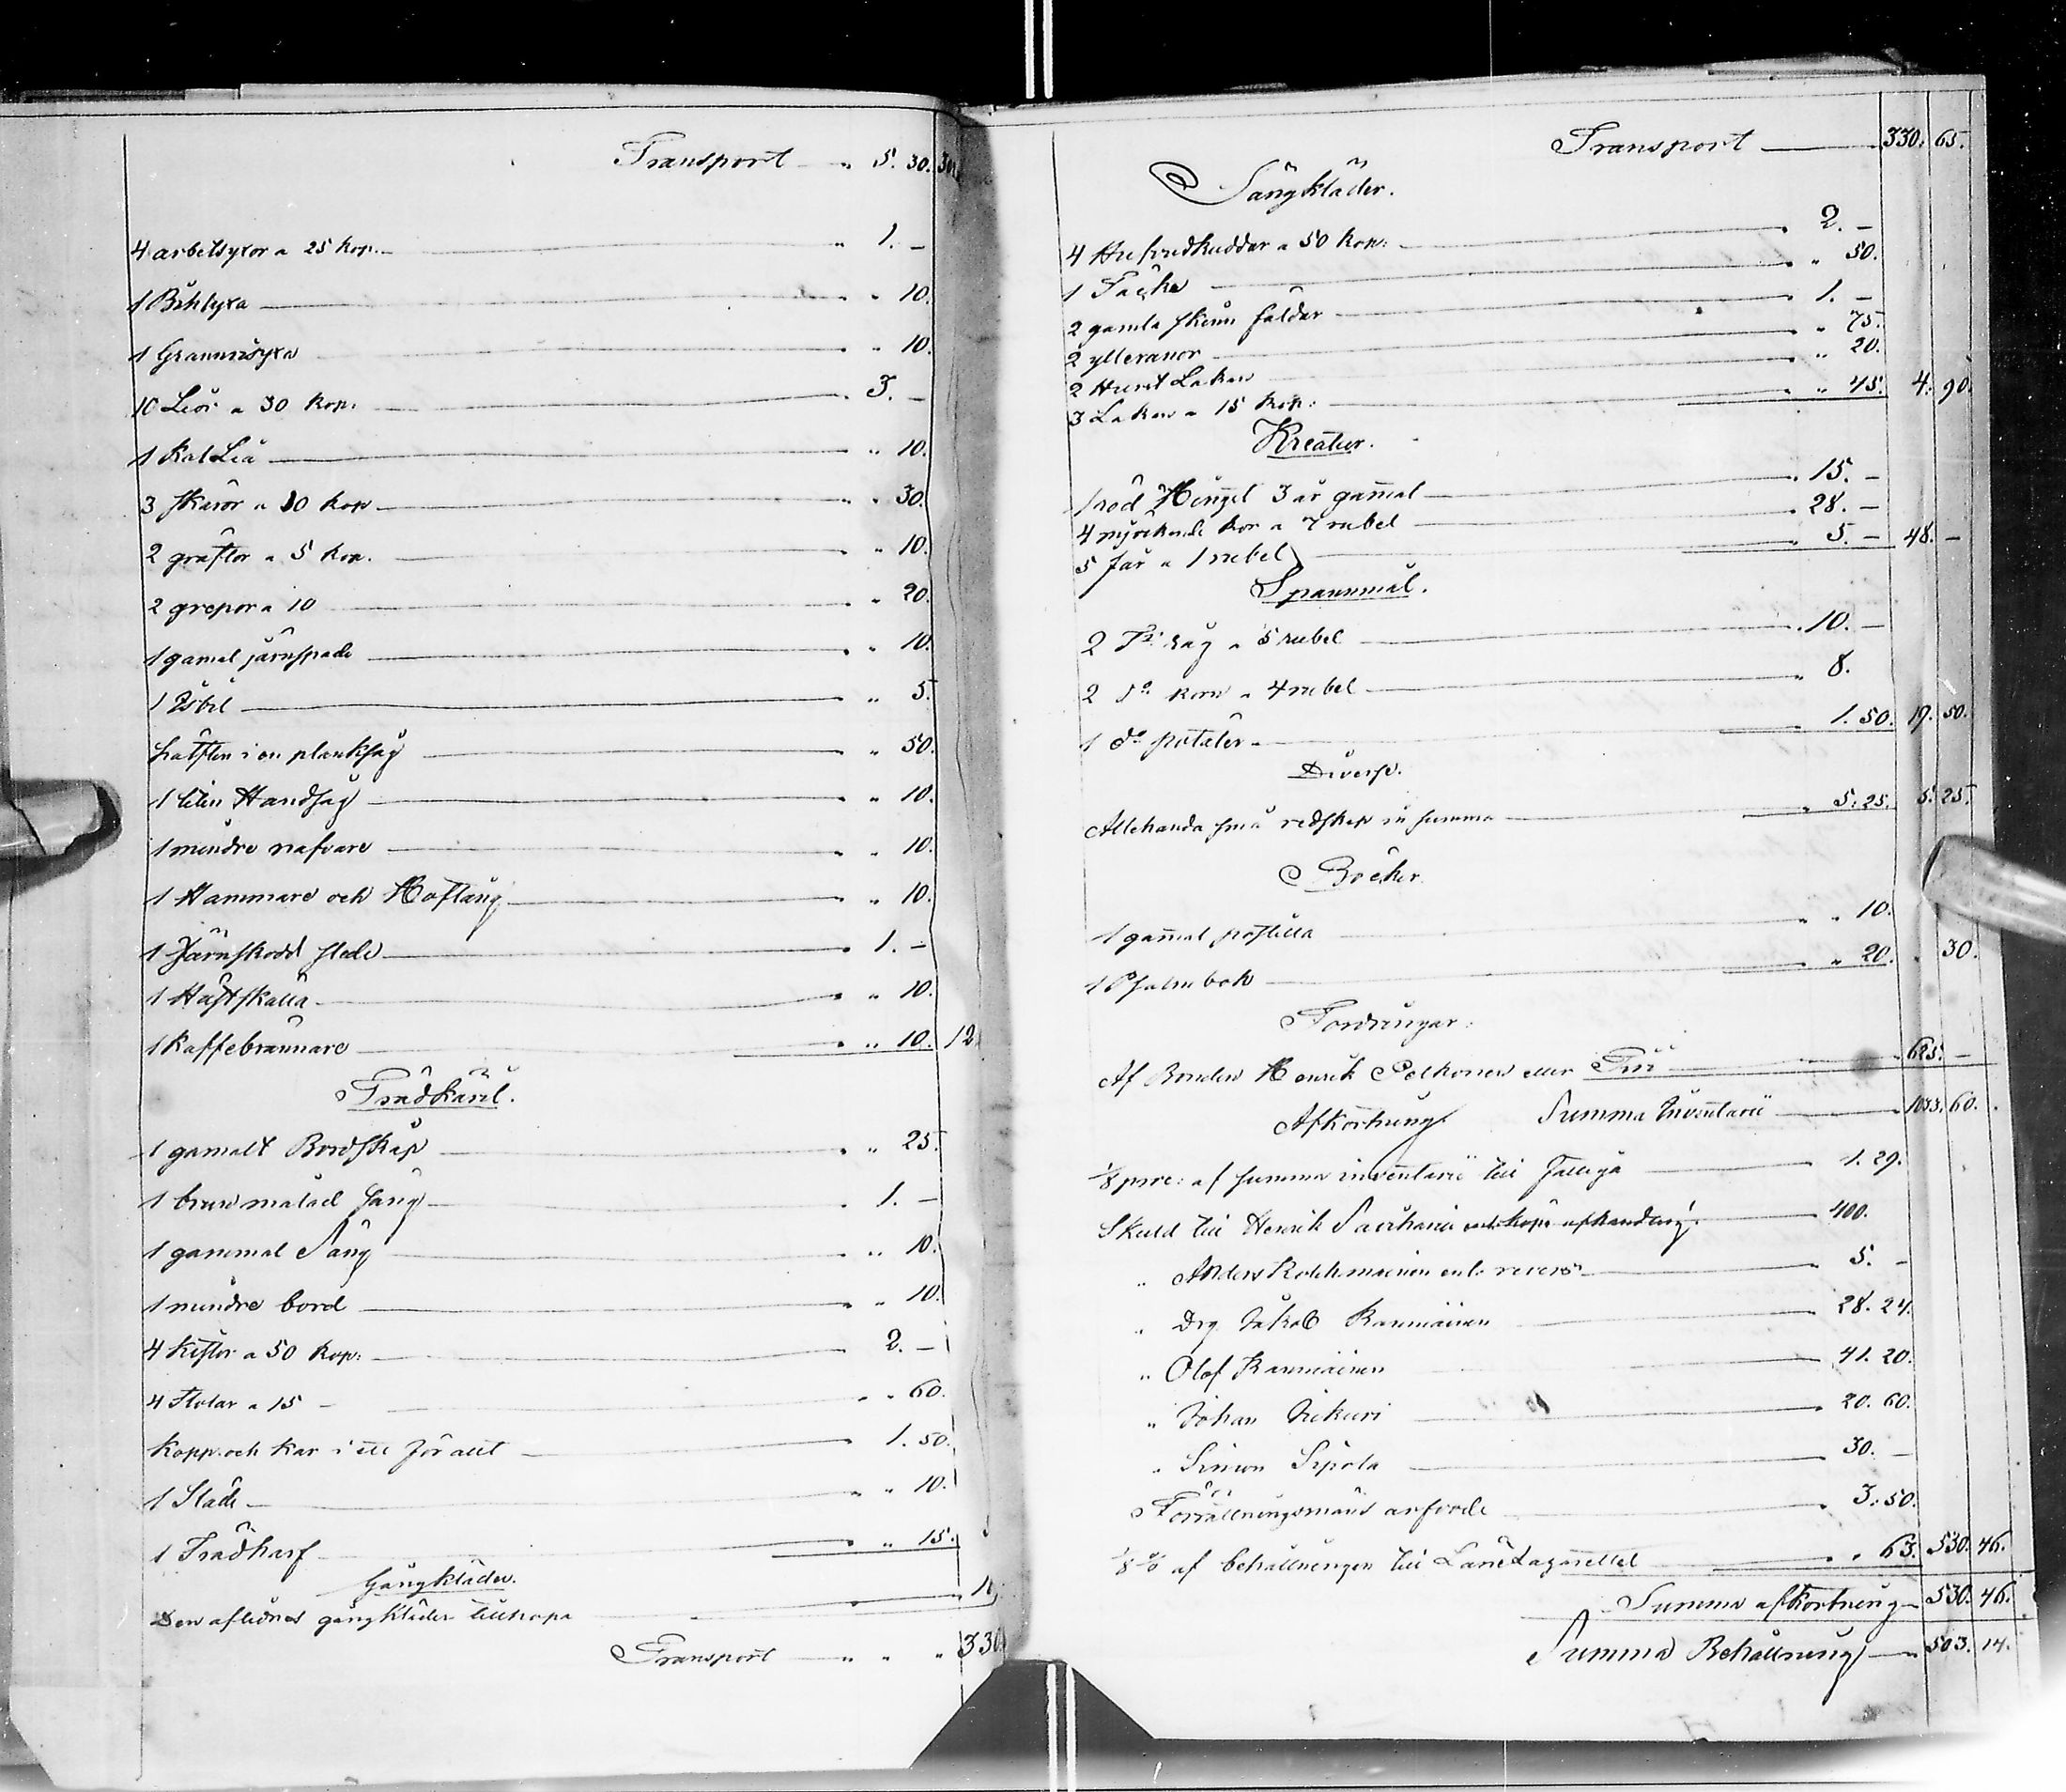 Transport — " 5. 30. 30
4 arbetsyxor a 25 kop. — " 1. –
1 Bihlyxa — " 10.
1 — " 10.
10 Liör a 30 kop. — 3. –
1 Kal Lia — " 10.
3 skäror a 10 kop — " 30.
2 gräftor a 5 kop. — " 10.
2 grepor a 10 — " 20.
1 gamal järnspade — " 10.
1 — " 5.
hälften i en planksåg — " 50.
1 liten Handsåg — " 10.
1 mindre nafvare — " 10.
1 Hammare och Hoftång — " 10.
1 Järnskodd släde — 1. –
1 Hästskälla — " 10.
1 Kaffebrännare — " 10. 12
Trädkäril.
1 gamalt Bordskåp — " 25.
1 brun målad säng — 1. –
1 gammal Säng — " 10.
1 mindre bord — " 10.
4 kistor a 50 kop: — 2. –
4 stolar a 15 — " 60.
Kopp och kar i ett för allt — 1. 50.
1 Släde — " 10.
1 Trädharf — " 15.
Gångkläder.
Den aflidnes gångkläder tillhopa —
Transport — " " " 330.
Transport — 330. 65.
Sängkläder.
4 Hufvudkuddar a 50 kop: — 2. –
1 Täcke — " 50.
2 gamla skinn fäldar — 1. –
2 ylleranor — " 75.
2 Hurst Lakan — " 20.
3 Lakan a 15 kop: — " 45. 4. 90.
Kreatur.
1 röd Hingst 3 år gammal — 15. –
4 mjölkande kor a 7 rubel — 28. –
5 får a 1 rubel — 5. – 48. –
Spannmål.
2 Tr råg a 5 rubel — 10. –
2 do korn a 4 rubel — 8.
1 do potäter — 1. 50. 19. 50.
Diverse.
Allehanda små redskap in summa — 5. 25. 5. 25.
Böcker
1 gammal postilla — " 10.
1 Psalmbok — " 20. " 30.
Fordringar:
Af Bonden Henrik Pelkonen eller — 625. –
Afkortning Summa Inventarii — 1033. 60.
1/8 prc: af summa inventarii till fattiga — 1. 29.
Skuld till Henrik enl. köpe afhandling — 400.
" Anders enl. revers — 5. –
" Drg Jakob Raumiainen — 28. 24.
" Olof Raumiainen — 41. 20.
" Johan — 20. 60.
" Simon Sipola — 30. –
Förrättningsmäns arfvode — 3. 50.
1/8 % af behållningen till — " 63. 530. 46.
Summa afkortning — 530. 46.
Summa Behållning — 503. 14.